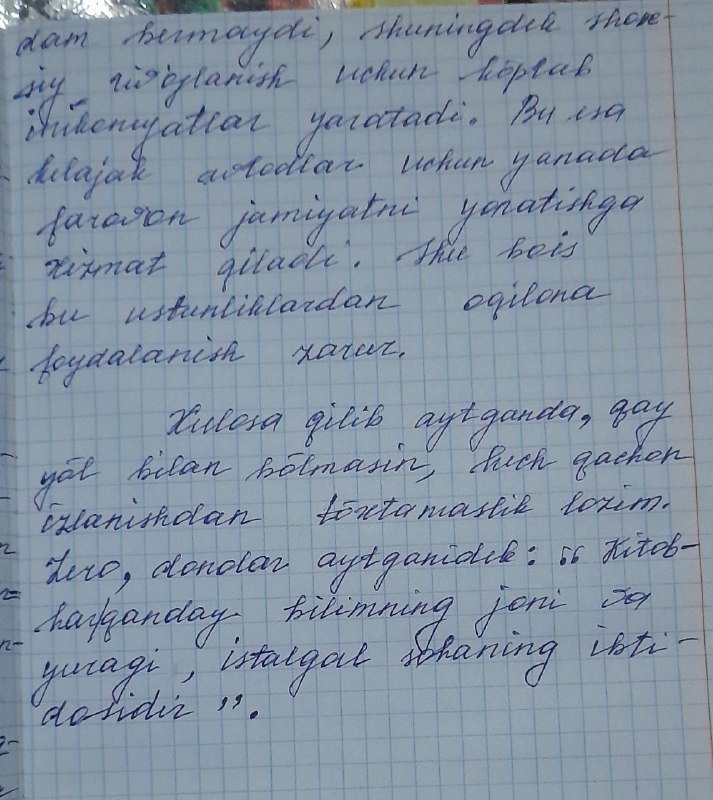 dam bermaydi, shuningdek shax-
siy rivojlanish uchun ko'plab
imkoniyatlar yaratadi. Bu esa
kelajak avlodlar uchun yanada
farovon jamiyatni yaratishga
xizmat qiladi. Shu bois
bu ustunliklardan oqilona
foydalanish zarur.
Xulosa qilib aytganda, qay
yōl bilan bōlmasin, hech qachon
izlanishdan tōxtamaslik lozim.
Zero, donolar aytganidek: "Kitob-
har qanday bilimning joni va
yuragi, istalgal sohaning ibti-
dosidir".